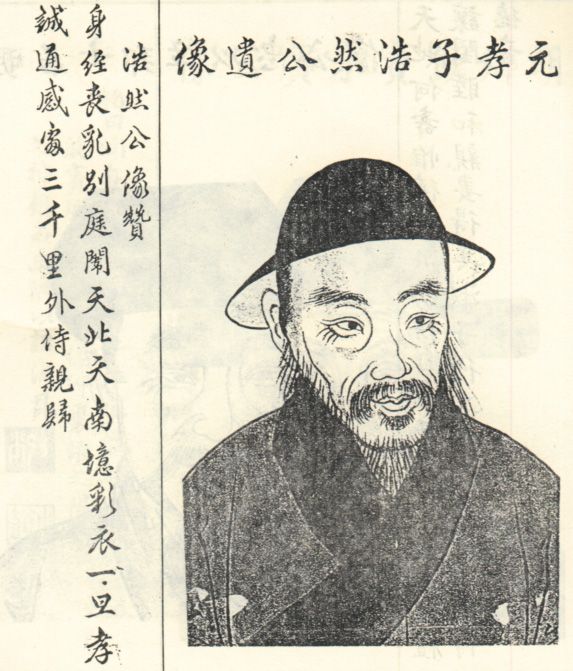 元孝子浩然公遺像
浩然公像贊
身經喪乳別庭闈天北天南憶彩衣一旦孝
誠通感處三千里外侍親歸